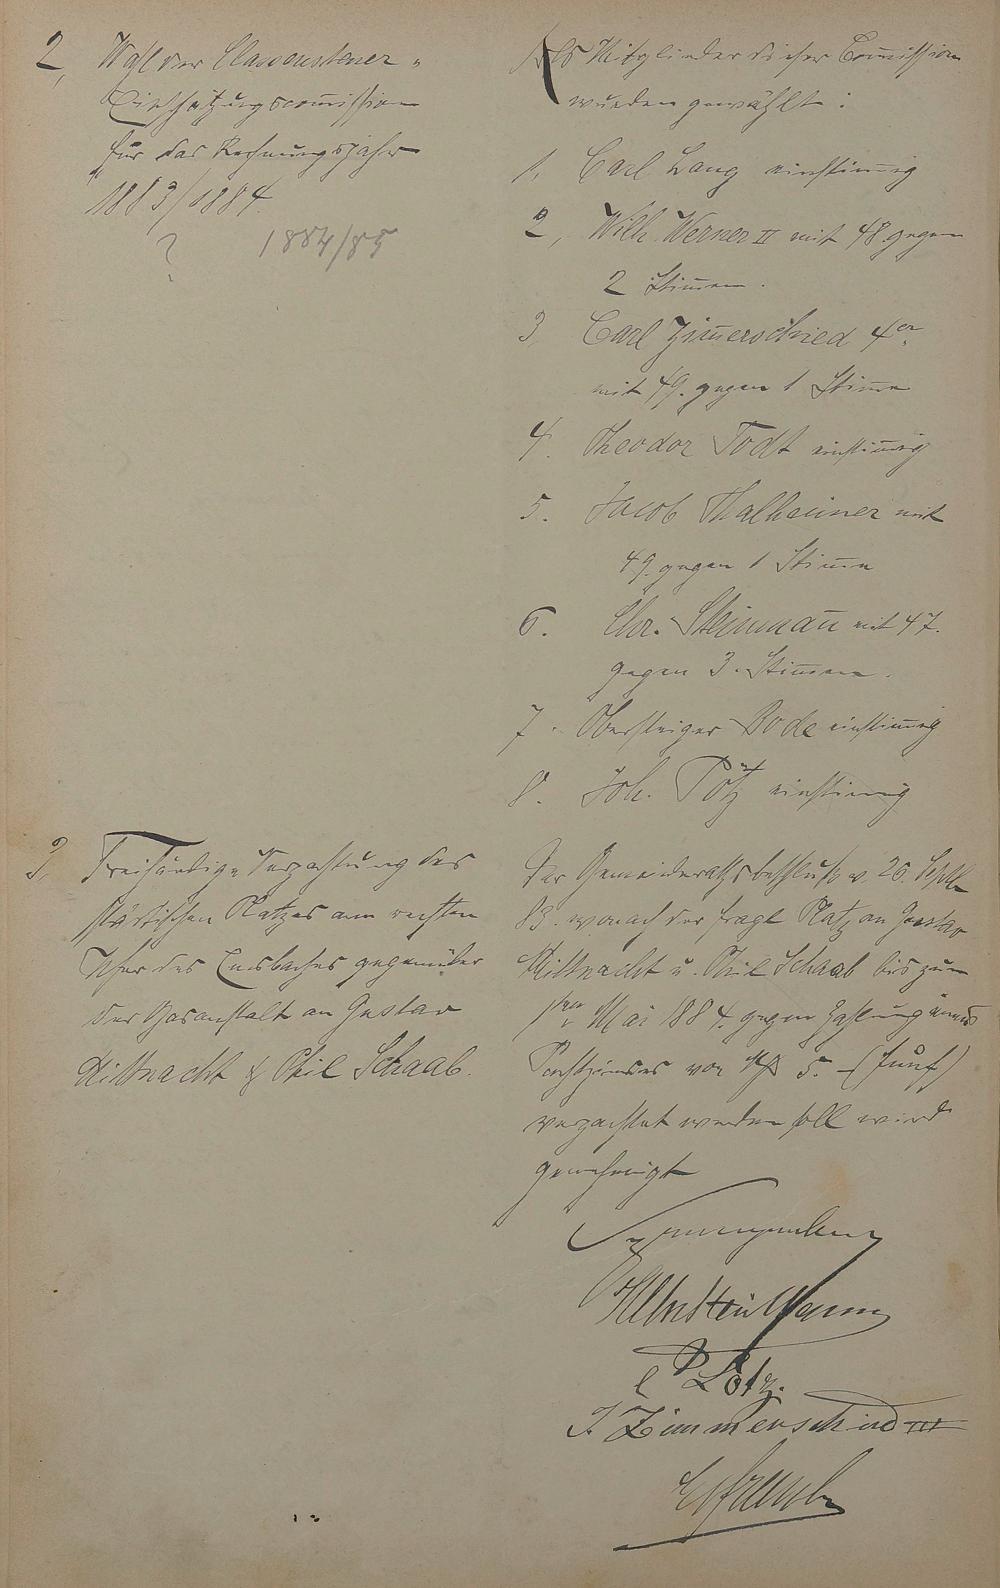 2, Wahl der Classensteuer-
Einschätzungscom̄ission
für das Rechnungsjahr
1883/1884.
? 1884/85
Als Mitglieder dieser Com̄ission
wurden gewählt:
1, Carl Lang einstim̄ig
2, Wilh. Werner II mit 48 gegen
2 Stim̄en.
3, Carl Zim̄erschied 4er
mit 49. gegen 1 Stim̄e
4. Theodor Todt einstim̄ig
5. Jacob Thalheimer mit
49. gegen 1 Stim̄e
6. Chr. Steinman̄ mit 47.
gegen 3. Stim̄en.
7. Obersteiger Bode einstim̄ig
8. Joh. Pötz einstim̄ig
3, Freihändige Verpachtung des
städtischen Platzes am rechten
Ufer des Emsbaches gegenüber
der Gasanstalt an Gustav
Hillnacht & Phil Schaab.
Der Gemeinderathsbeschluß v. 26. Septbr
83. wonach der fragl Platz an Gustav
Hillnacht u. Phil Schaab bis zum
1ten Mai 1884. gegen Zahlung eines
Pachtzinses von M 5. – (fünf)
verpachtet werden soll wird
genehmigt
P Lotz.
J. Zimmerschied III